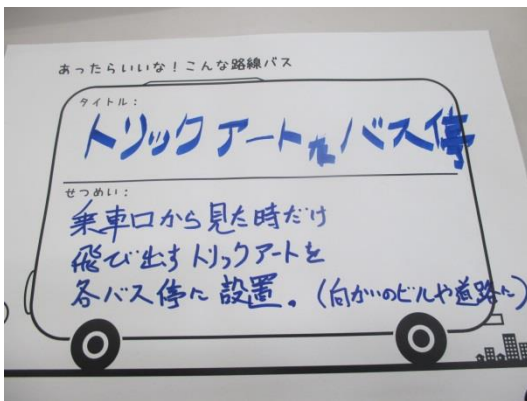 あったらいいな！こんな路線バス
タイトル：
トリックアートなバス停
せつめい：
乗車口から見た時だけ
飛び出すトリックアートを
各バス停に設置。（向かいのビルや道路に）